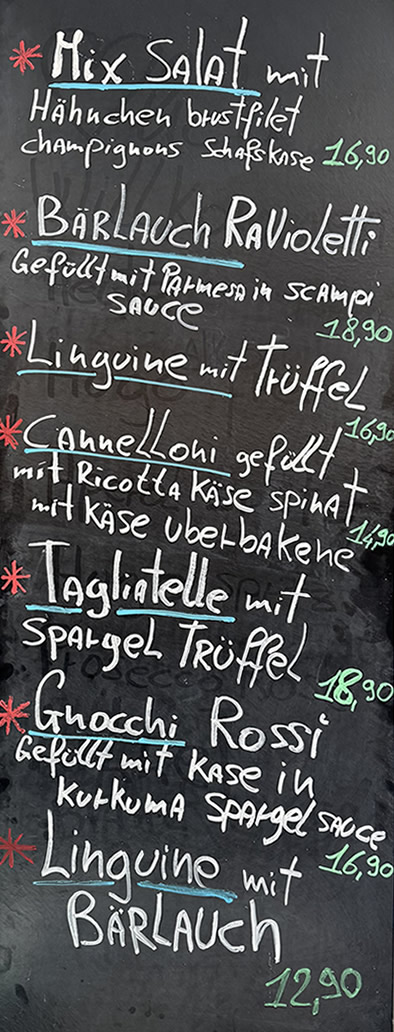 * Mix Salat mit
Hähnchen brustfilet
champignons Schafskäse 16,90
* Bärlauch Ravioletti
Gefüllt mit Parmesa in scampi
sauce
18,90
* Linguine mit Trüffel
16,90
* Cannelloni gefüllt
mit Ricotta Käse spinat
mit Käse uberbakene
14,90
* Tagliatelle mit
Spargel Trüffel
18,90
* Gnocchi Rossi
Gefüllt mit Kase in
Kurkuma Spargel sauce
16,90
* Linguine mit
Bärlauch
12,90